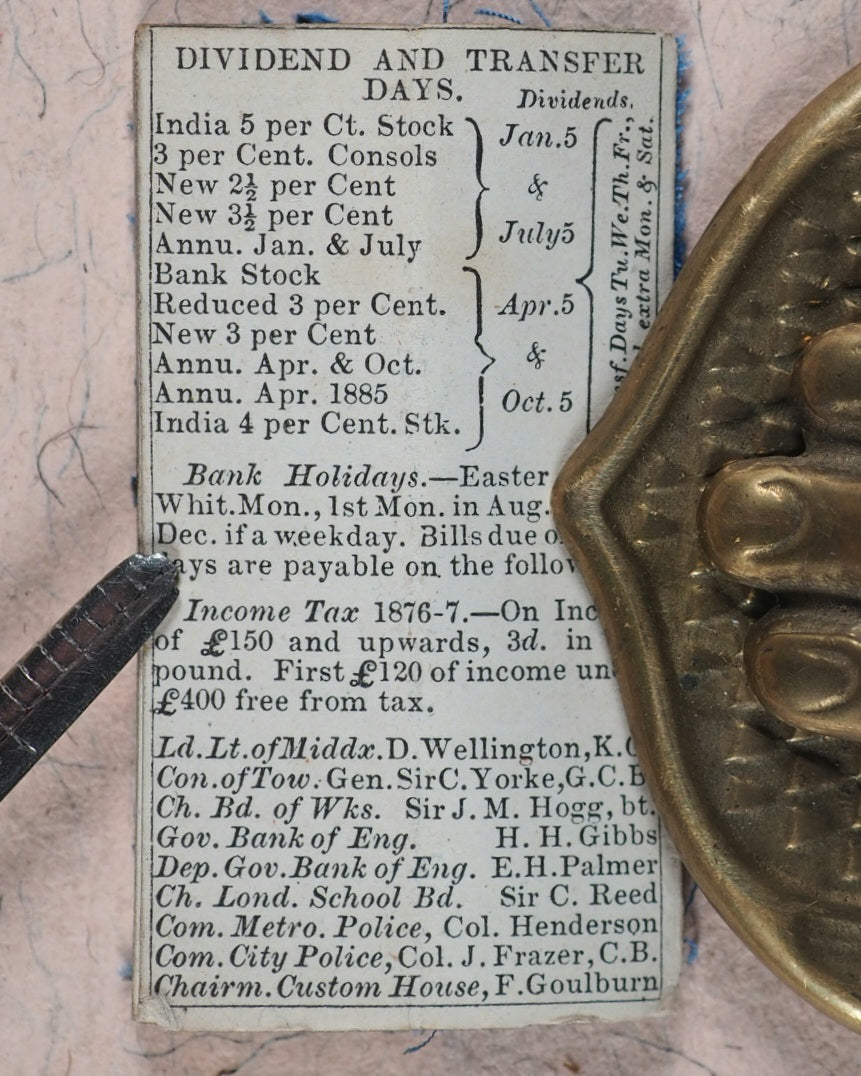 DIVIDEND AND TRANSFER
DAYS.
Dividends.
India 5 per Ct. Stock
3 per Cent. Consols
New 2½ per Cent
New 3½ per Cent
Annu. Jan. & July
Jan. 5
&
July 5
Bank Stock
Reduced 3 per Cent.
New 3 per Cent
Annu. Apr. & Oct.
Annu. Apr. 1885
India 4 per Cent. Stk.
Apr. 5
&
Oct. 5
Days Tu. We. Th. Fr.,
extra Mon. & Sat.
Bank Holidays.—Easter
Whit. Mon., 1st Mon. in Aug.
Dec. if a weekday. Bills due
are payable on the
Income Tax 1876-7.—On
of £150 and upwards, 3d. in
pound. First £120 of income
£400 free from tax.
Ld. Lt. of Middx. D. Wellington, K.
Con. of Tow. Gen. Sir C. Yorke, G.C.B
Ch. Bd. of Wks. Sir J. M. Hogg, bt.
Gov. Bank of Eng. H. H. Gibbs
Dep. Gov. Bank of Eng. E. H. Palmer
Ch. Lond. School Bd. Sir C. Reed
Com. Metro. Police, Col. Henderson
Com. City Police, Col. J. Frazer, C.B.
Chairm. Custom House, F. Goulburn